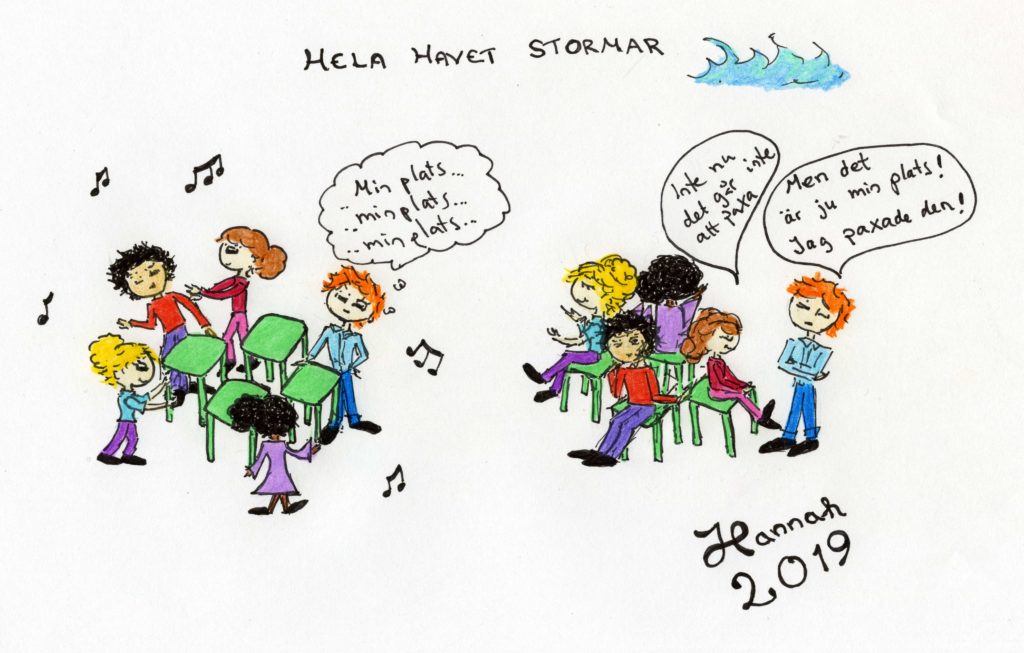 HELA HAVET STORMAR
Min plats...
..min plats...
...min plats...
Inte nu
det går inte
att paxa
Men det
är ju min plats!
Jag paxade den!
Hannah
2019